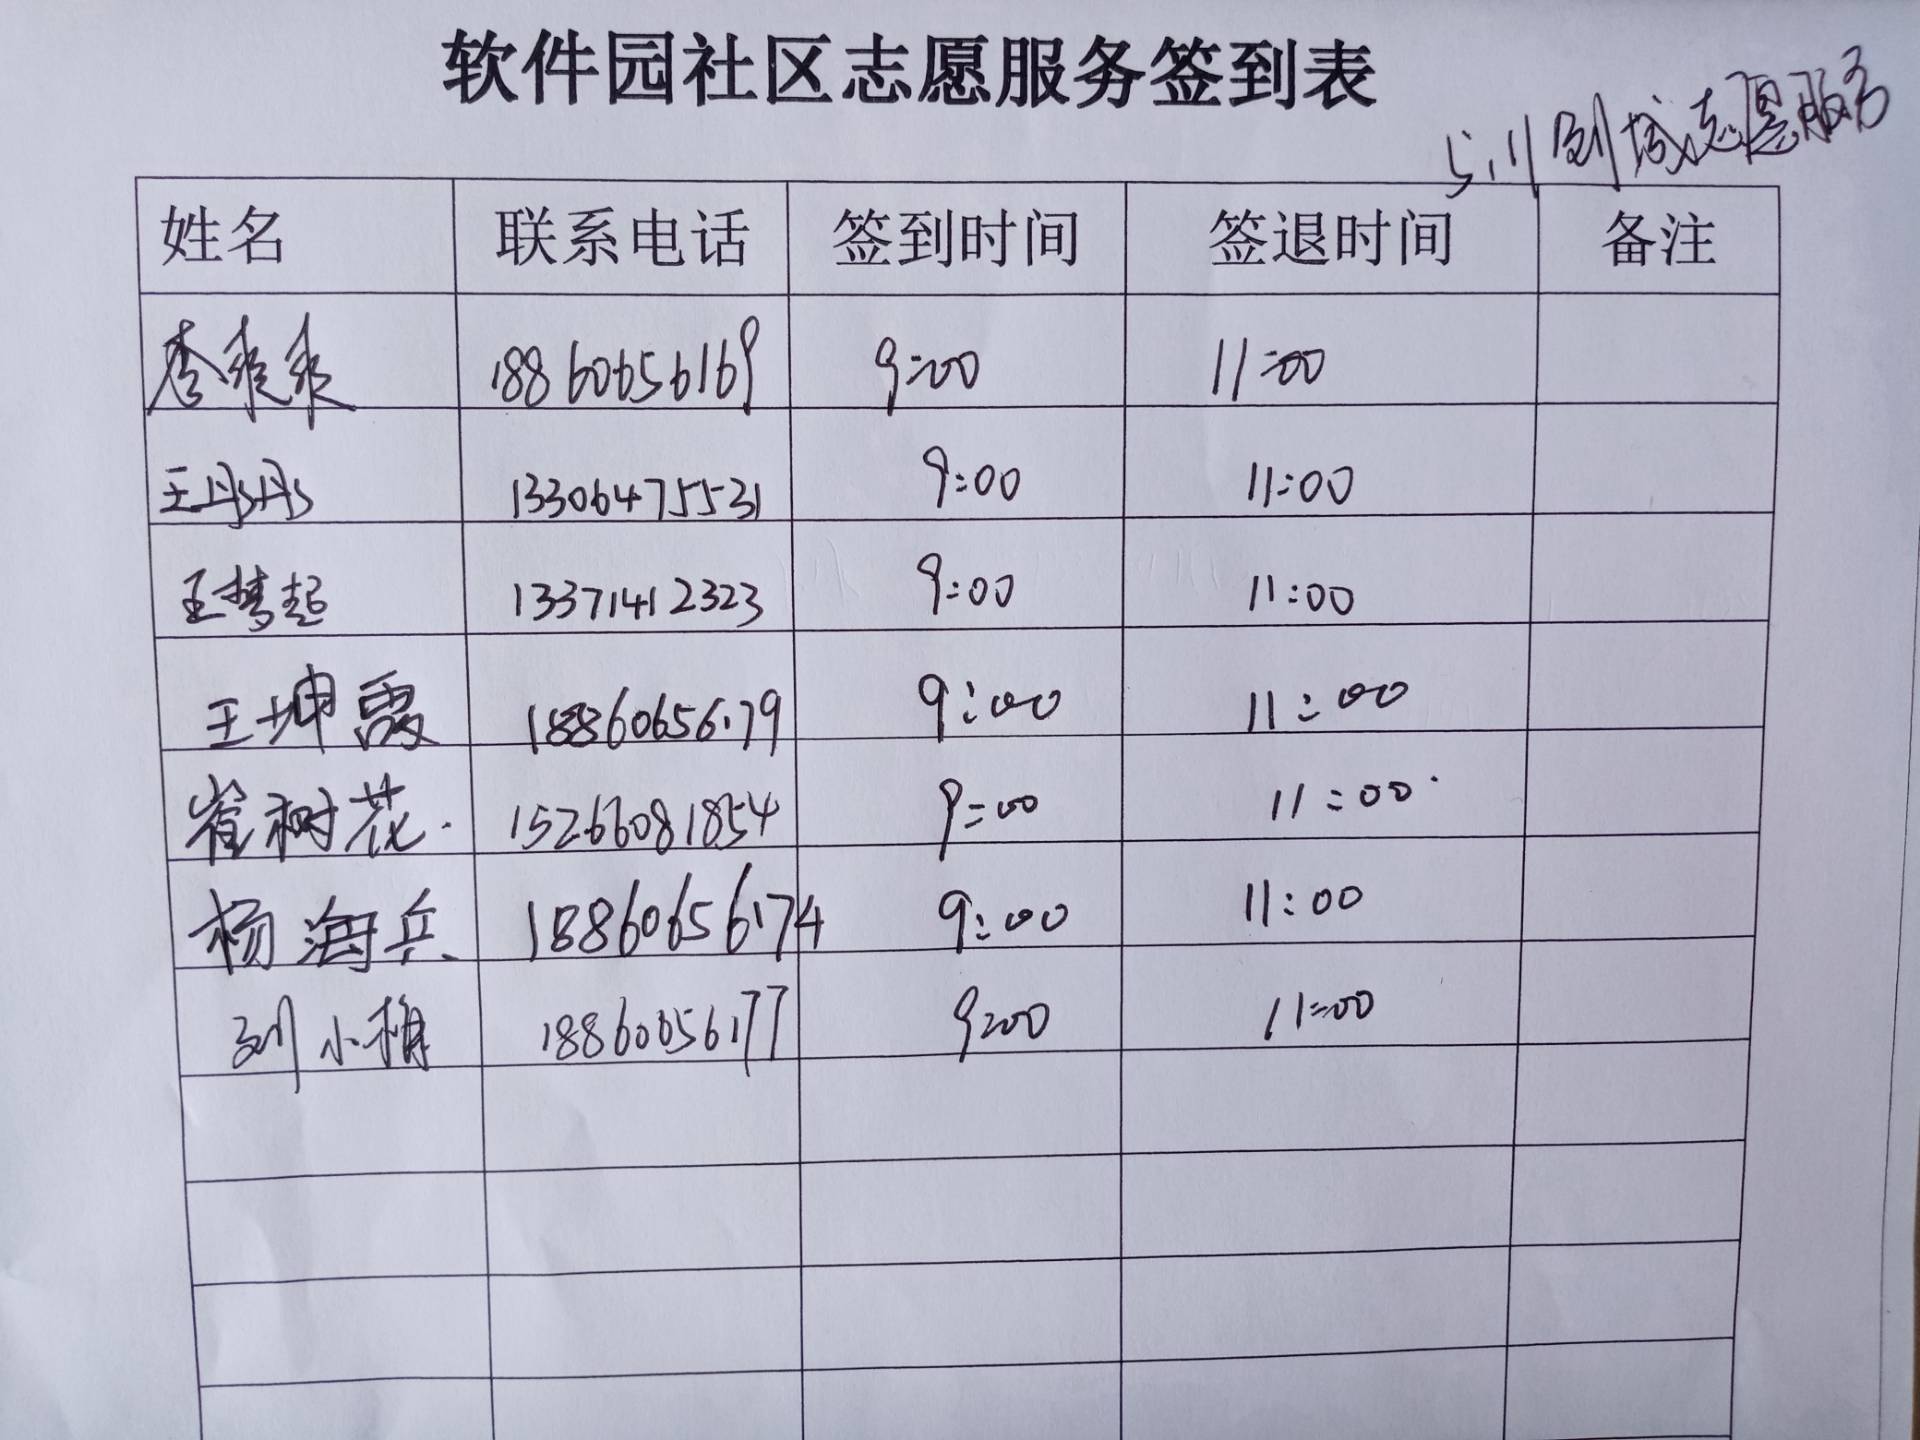 软件园社区志愿服务签到表
5.11创城志愿服务
姓名 联系电话 签到时间 签退时间 备注
李乘乘 18860656169 9:00 11:00
王彤彤 13306475531 9:00 11:00
王梦起 13371412323 9:00 11:00
王坤霞 18860656179 9:00 11:00
崔树花 15266081854 9:00 11:00
杨海兵 18860656174 9:00 11:00
刘小梅 18860656177 9:00 11:00